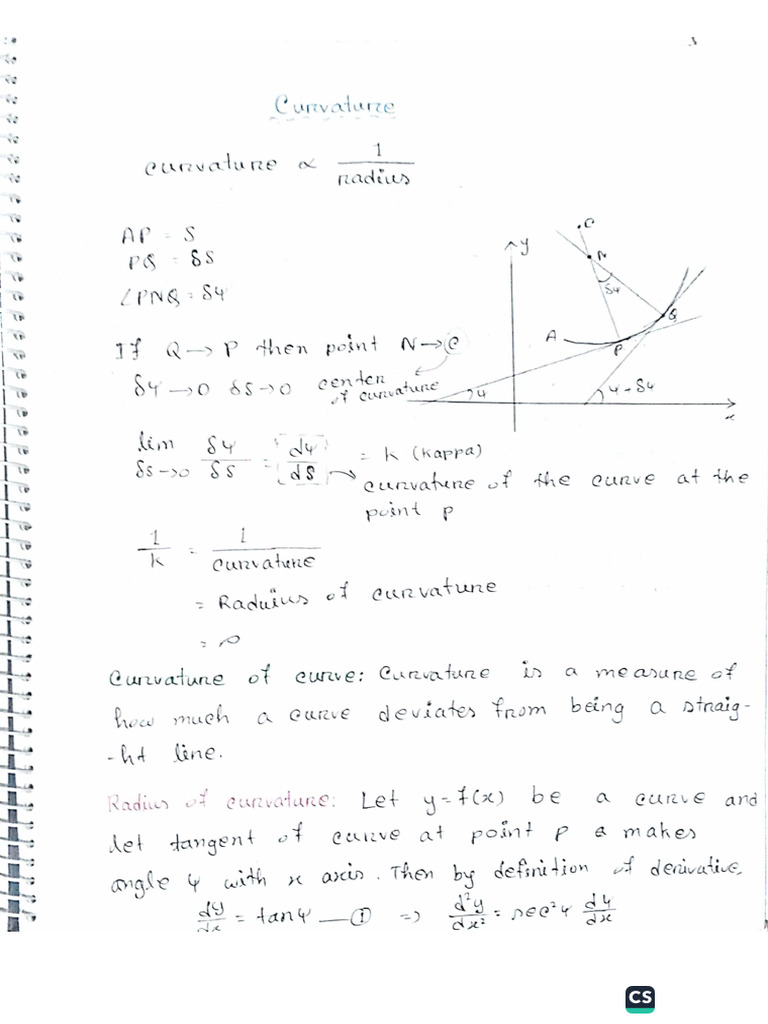 Curvature
curvature ∝ 1/radius
AP = S
PQ = δS
∠PNQ = δψ
If Q → P then point N → C
δψ → 0 δS → 0 center of curvature
lim δs→0 δψ/δs = dψ/dS = k (kappa)
curvature of the curve at the
point p
1/k = 1/curvature
= Raduius of curvature
= ρ
y
C
N
δψ
Q
A
P
ψ
ψ - δψ
x
Curvature of curve: Curvature is a measure of
how much a curve deviates from being a straig-
-ht line.
Radius of curvature: Let y=f(x) be a curve and
let tangent of curve at point p makes
angle ψ with x axis. Then by definition of derivative,
dy/dx = tanψ — ① => d²y/dx² = sec²ψ dψ/dx
CS